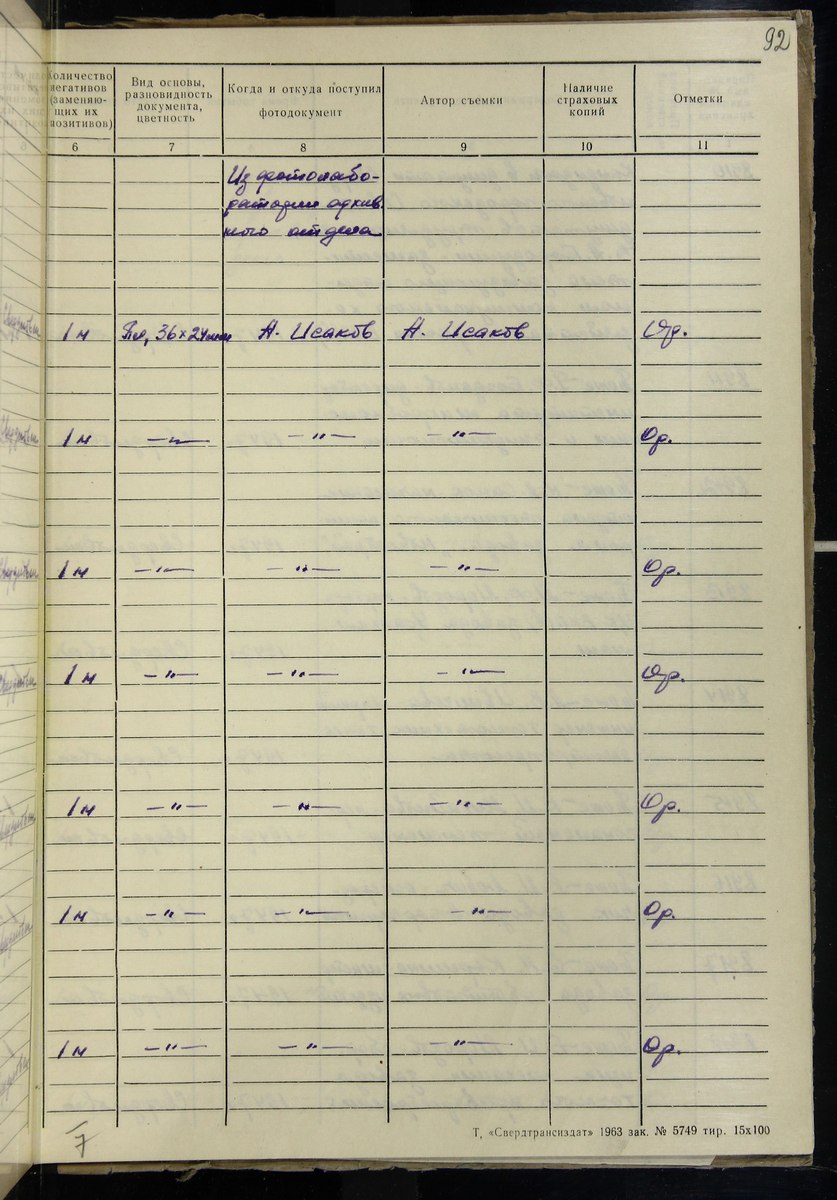 92
Количество негативов (заменяющих их позитивов)
Вид основы, разновидность документа, цветность
Когда и откуда поступил фотодокумент
Автор съемки
Наличие страховых копий
Отметки
6 7 8 9 10 11
Из фотолабо-
ратории архив
ного отдела
1 н Пл, 36×24мм А. Исаков А. Исаков Ор.
1 н —"— —"— —"— Ор.
1 н —"— —"— —"— Ор.
1 н —"— —"— —"— Ор.
1 н —"— —"— —"— Ор.
1 н —"— —"— —"— Ор.
1 н —"— —"— —"— Ор.
Т, «Свердтрансиздат» 1963 зак. № 5749 тир. 15х100
7